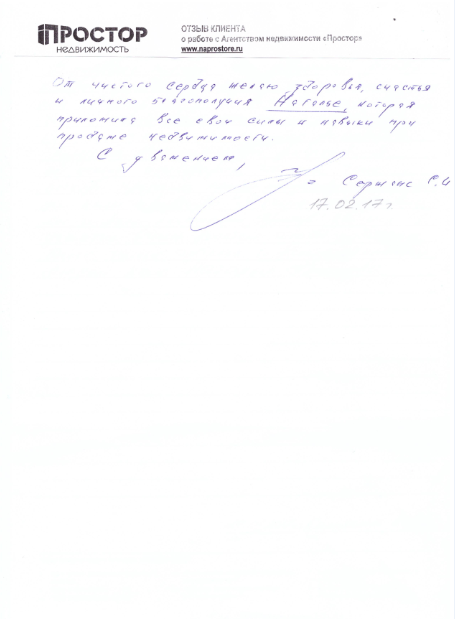 ПРОСТОР
НЕДВИЖИМОСТЬ
ОТЗЫВ КЛИЕНТА
о работе с Агентством недвижимости «Простор»
www.naprostore.ru
От чистого сердца желаю здоровья, счастья
и личного благополучия Наталье, которая
приложила все свои силы и навыки при
продаже недвижимости.
С уважением,
17.02.17г